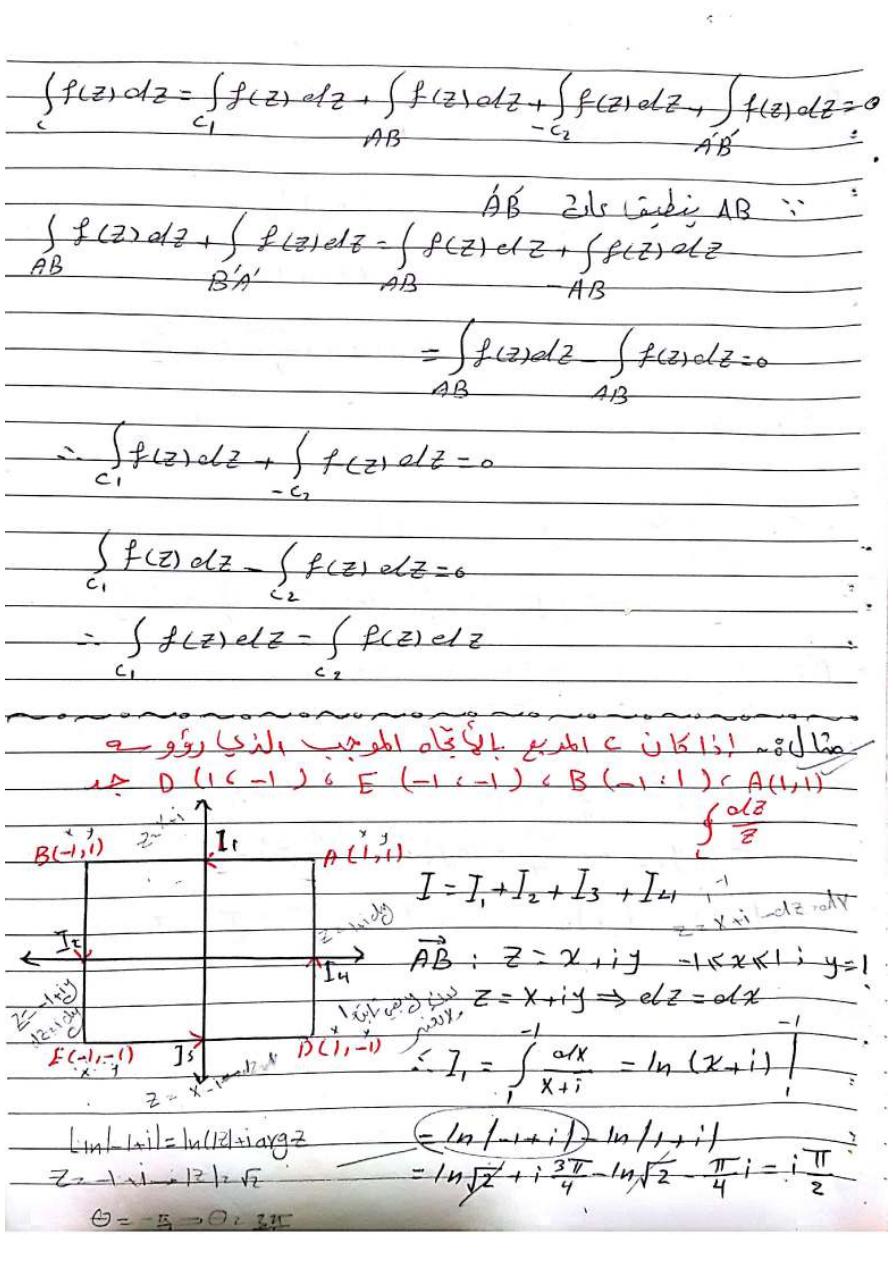 ∫_c f(z)dz = ∫_{c1} f(z)dz + ∫_{AB} f(z)dz + ∫_{-c2} f(z)dz + ∫_{A'B'} f(z)dz = 0
∵ AB ينطبق على A'B'
∫_{AB} f(z)dz + ∫_{B'A'} f(z)dz = ∫_{AB} f(z)dz + ∫_{-AB} f(z)dz
= ∫_{AB} f(z)dz - ∫_{AB} f(z)dz = 0
∴ ∫_{c1} f(z)dz + ∫_{-c2} f(z)dz = 0
∫_{c1} f(z)dz - ∫_{c2} f(z)dz = 0
∴ ∫_{c1} f(z)dz = ∫_{c2} f(z)dz
مثال: إذا كان c المربع بالأتجاه الموجب الذي رؤوسه
A(1,1) ، B(-1,1) ، E(-1,-1) ، D(1,-1) جد
∮_c dz/z
B(-1,1)
x y
I1
A(1,1)
x y
I = I1 + I2 + I3 + I4
z = x+i → dz = dx
I2
I4
AB : z = x+iy -1≤x≤1 ; y=1
z = -1+iy
dz = idy
z = x+iy ⇒ dz = dx
E(-1,-1)
x y
I3
D(1,-1)
x y
∴ I1 = ∫_1^{-1} dx/(x+i) = ln(x+i) |_1^{-1}
z = x-i
ln|-1+i| = ln|z| + i arg z
= ln|-1+i| - ln|1+i|
z = -1+i → |z| = √2
= ln√2 + i 3π/4 - ln√2 - π/4 i = i π/2